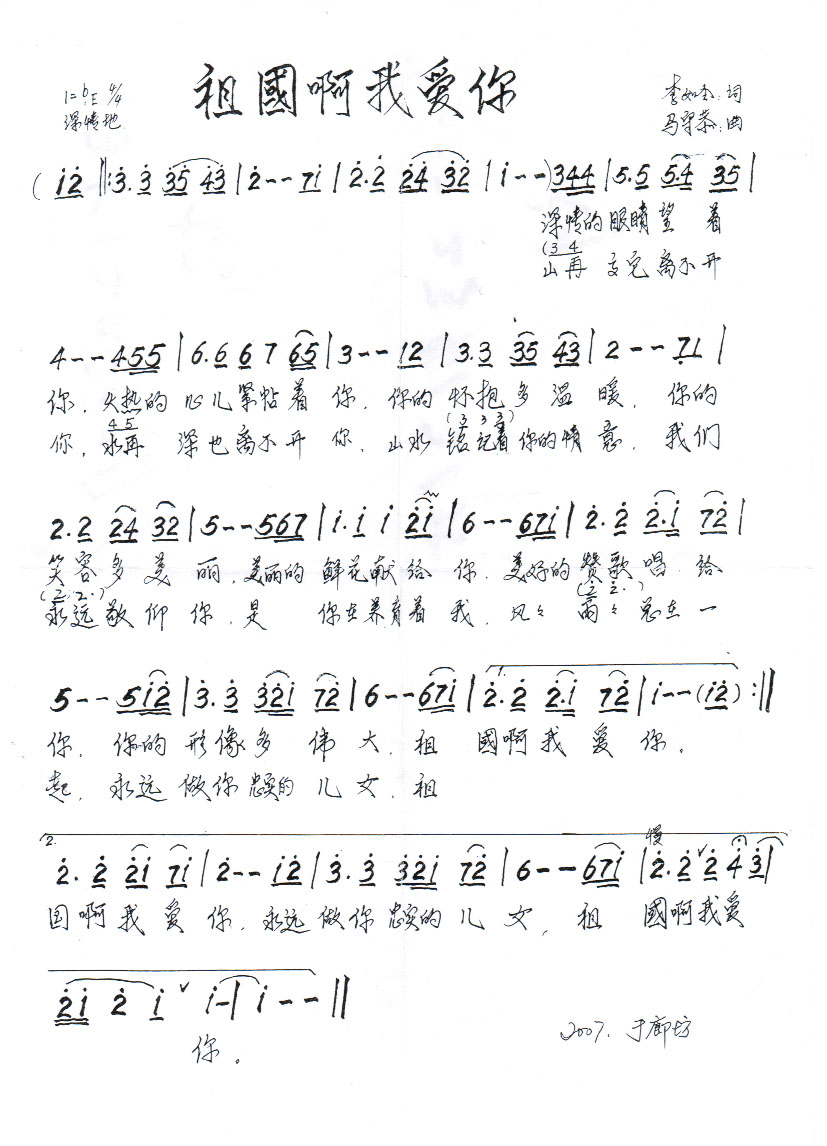 祖國啊我愛你
1=♭E 4/4
深情地
词
马守恭:曲
(i̇2̇ ‖:3̇.3̇ 3̇5̇ 4̇3̇|2̇--7i̇|2̇.2̇ 2̇4̇ 3̇2̇|i̇--)344|5.5 5.4 35|
深情的眼睛望着
(3 4
山再 离不开
4--455|6.6 6 7 65|3--12|3.3 35 43|2--7̣1|
你,火热的心儿紧帖着你,你的怀抱多温暖,你的
4 5 (3 3 3)
你,水再深也离不开你,山水铭记着你的情意,我们
2.2 24 32|5--567|i̇.i̇ i̇ 2̇i̇|6--67i̇|2̇.2̇ 2̇.i̇ 72̇|
笑容多美丽,美丽的鲜花献给你,美好的赞歌唱给
(2̇. 2̇.) (2̇ 2̇.)
永远敬仰你,是你在养育着我,风々雨々总在一
5--5i̇2̇|3̇.3̇ 3̇2̇i̇ 72̇|6--67i̇|1.2̇.2̇ 2̇.i̇ 72̇|i̇--(i̇2̇):‖
你,你的形像多伟大,祖國啊我爱你。
起,永远做你忠实的儿女,祖
2.
慢
2̇.2̇ 2̇i̇ 7i̇|2̇--i̇2̇|3̇.3̇ 3̇2̇i̇ 72̇|6--67i̇|2̇.2̇ˇ2̇ 4̇ 3̇|
国啊我爱你,永远做你忠实的儿女,祖國啊我爱
2̇i̇ 2̇ i̇ˇ i̇-|i̇--‖
你。
2007.于廊坊